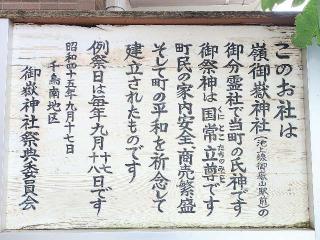 このお社は
嶺御嶽神社(池上線御嶽山駅前)の
御分霊社で当町の氏神です
御祭神は国常立尊です
くにとこたちのみこと
町民の家内安全商売繁盛
そして町の平和を祈念して
建立されたものです
例祭日は毎年九月十七十八日です
昭和四十五年九月十七日
千鳥南地区
御嶽神社祭典委員会